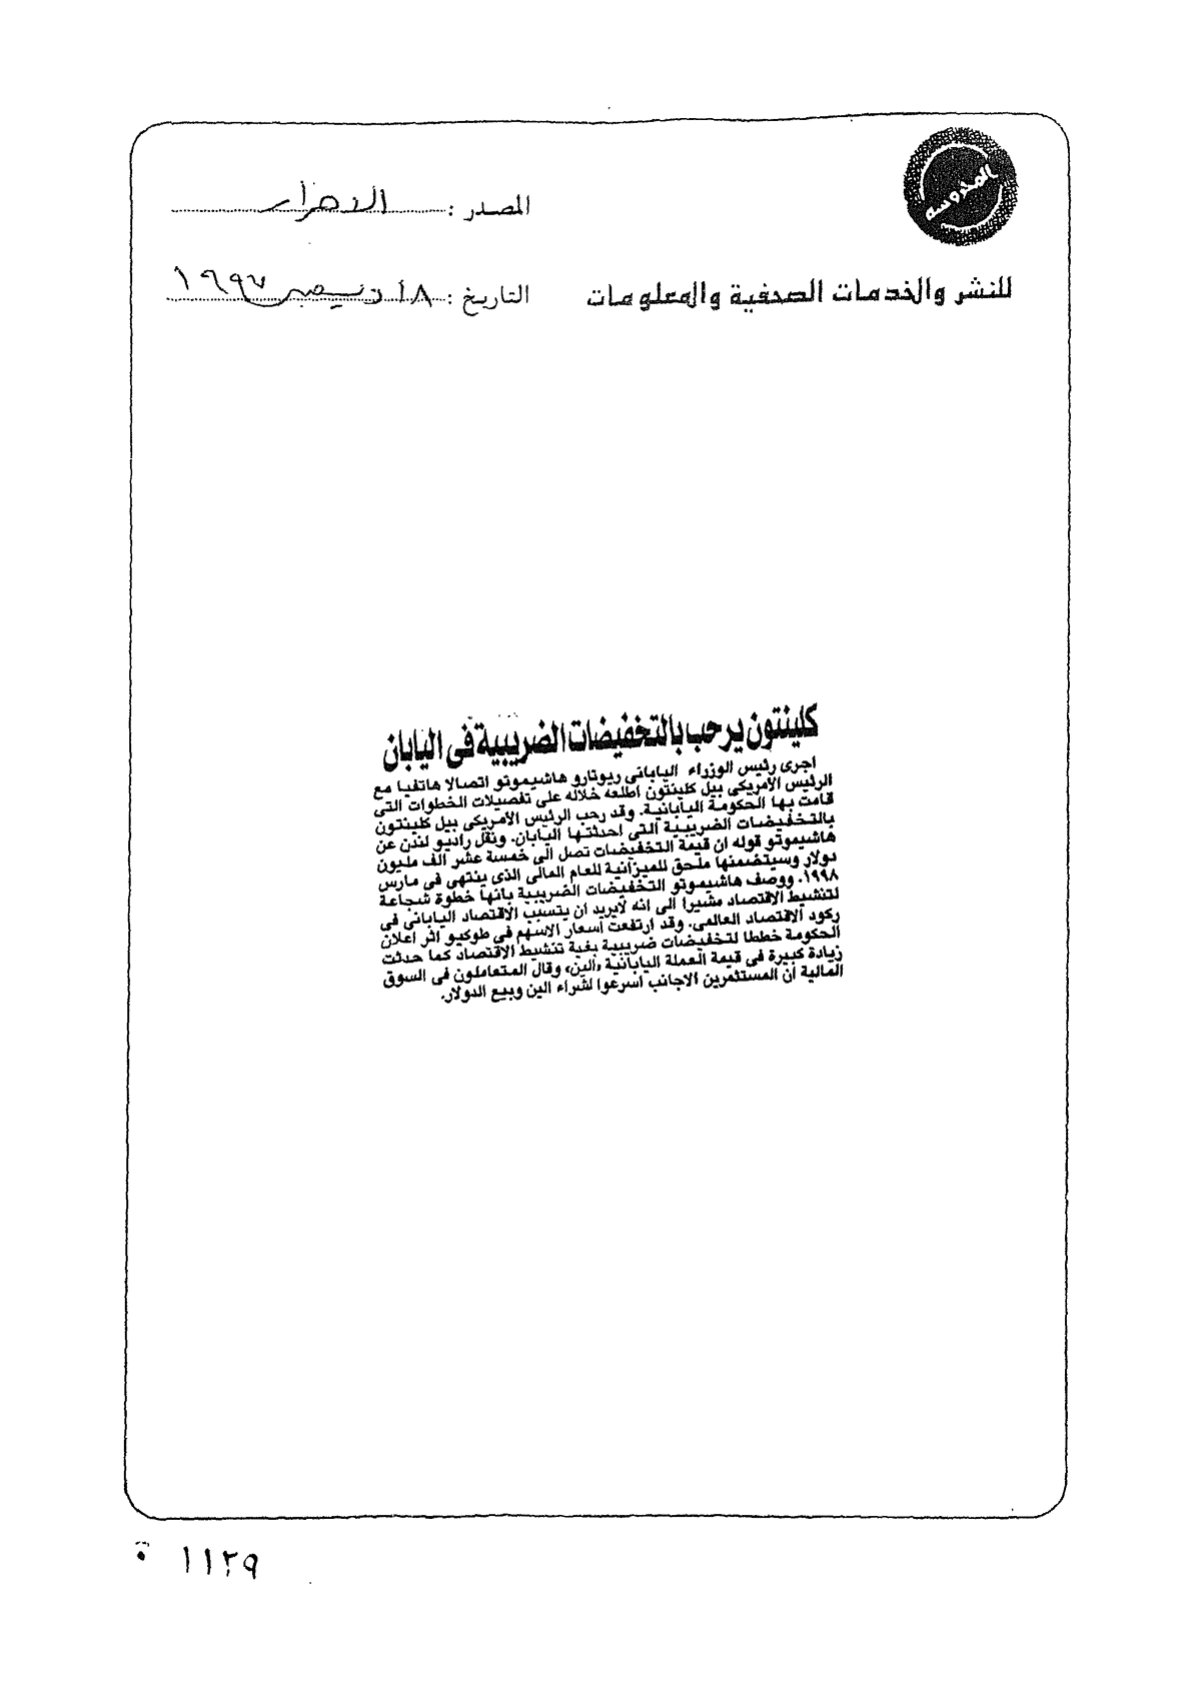 المحروسة
المصدر : الاحرار
للنشر والخدمات الصحفية والمعلومات
التاريخ : ١٨ ديسمبر ١٩٩٧
كلينتون يرحب بالتخفيضات الضريبية فى اليابان
اجرى رئيس الوزراء اليابانى ريوتارو هاشيموتو اتصالا هاتفيا مع
الرئيس الأمريكى بيل كلينتون اطلعه خلاله على تفصيلات الخطوات التى
قامت بها الحكومة اليابانية. وقد رحب الرئيس الأمريكى بيل كلينتون
بالتخفيضات الضريبية التى احدثتها اليابان. ونقل راديو لندن عن
هاشيموتو قوله ان قيمة التخفيضات تصل الى خمسة عشر الف مليون
دولار وسيتضمنها ملحق للميزانية للعام المالى الذى ينتهى فى مارس
١٩٩٨. ووصف هاشيموتو التخفيضات الضريبية بانها خطوة شجاعة
لتنشيط الاقتصاد مشيرا الى انه لايريد ان يتسبب الاقتصاد اليابانى فى
ركود الاقتصاد العالمى. وقد ارتفعت اسعار الاسهم فى طوكيو اثر اعلان
الحكومة خططا لتخفيضات ضريبية بغية تنشيط الاقتصاد كما حدثت
زيادة كبيرة فى قيمة العملة اليابانية «الين» وقال المتعاملون فى السوق
المالية ان المستثمرين الاجانب اسرعوا لشراء الين وبيع الدولار.
١١٢٩